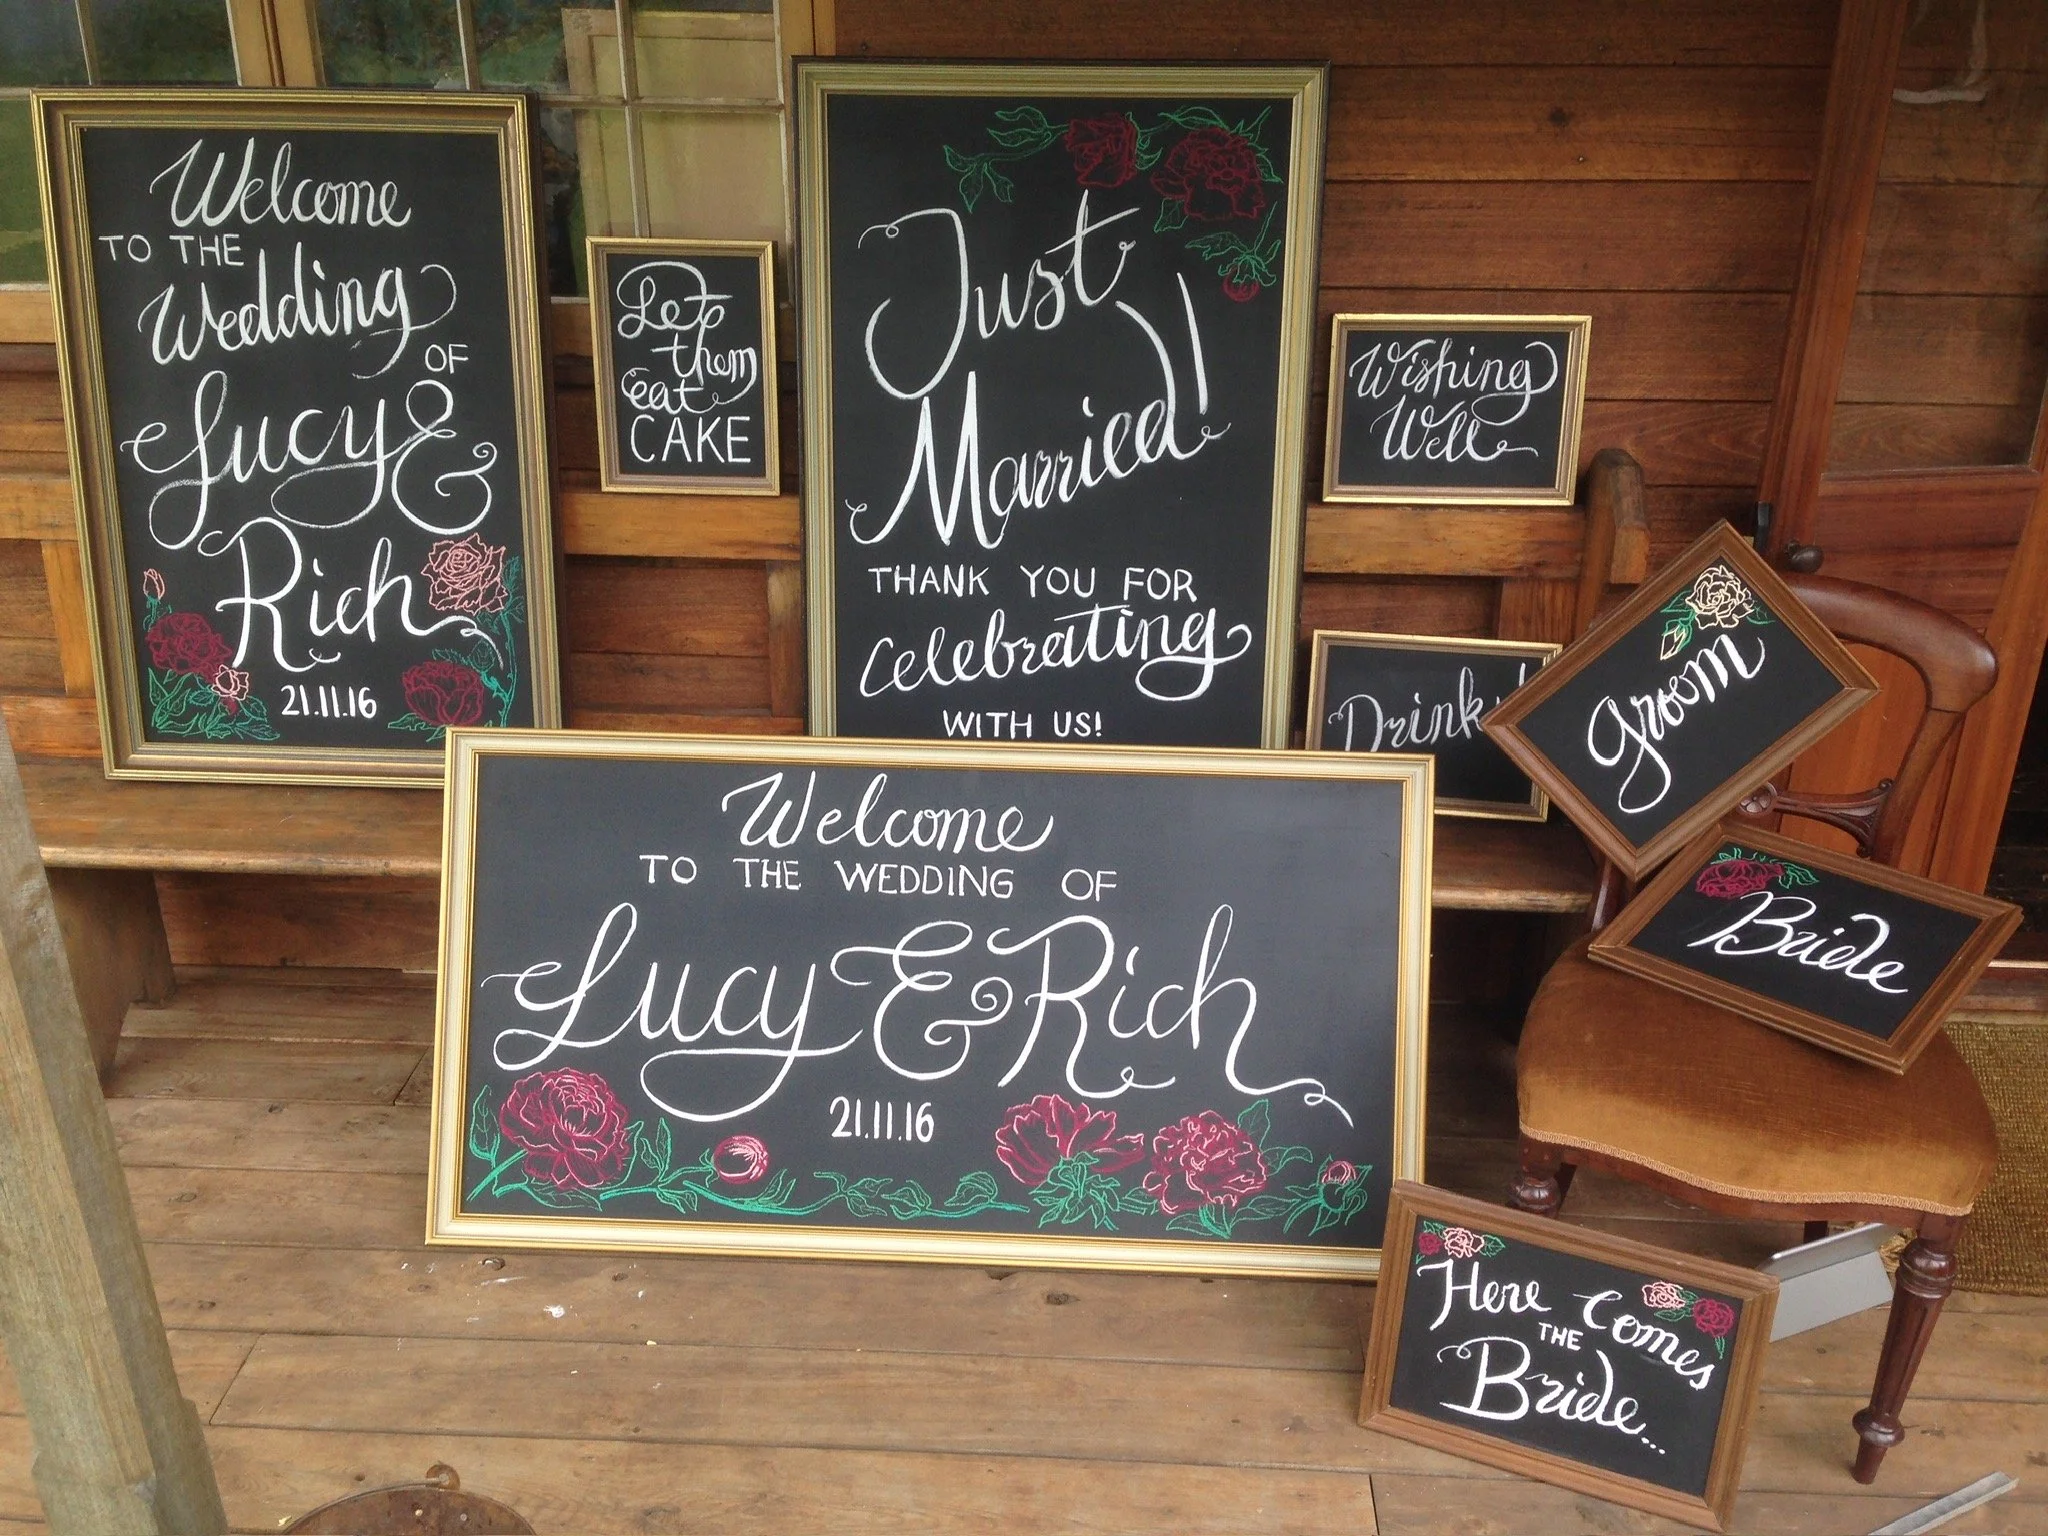 Welcome
TO THE
Wedding
OF
Lucy &
Rich
21.11.16
Let
them
eat
CAKE
Just
Married!
THANK YOU FOR
Celebrating
WITH US!
Wishing
Well
Drinks!
Groom
Bride
Welcome
TO THE WEDDING OF
Lucy & Rich
21.11.16
Here Comes
THE
Bride...